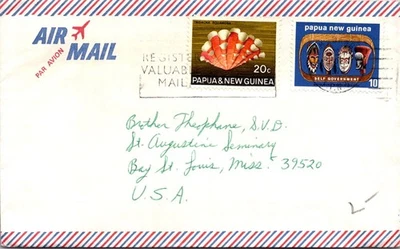 AIR MAIL
PAR AVION
REGISTE
VALUAB
MAIL
20c
PAPUA & NEW GUINEA
papua new guinea
SELF GOVERNMENT
10
Brother Theophane, S.V.D.
St. Augustine Seminary
Bay St. Louis, Miss. 39520
U.S.A.